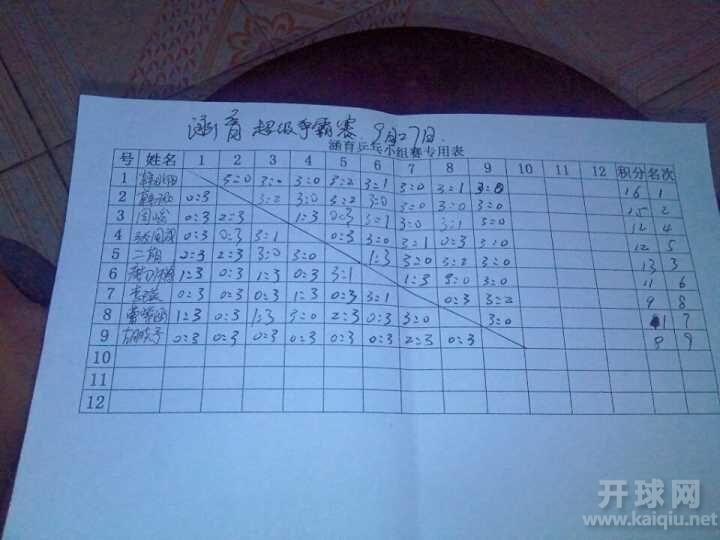 涵育 超级争霸赛 9月27日.
涵育乒乓小组赛专用表
号 姓名 1 2 3 4 5 6 7 8 9 10 11 12 积分 名次
1 3:0 3:0 3:0 3:2 3:1 3:0 3:1 3:0 16 1
2 0:3 3:2 3:0 3:2 3:0 3:0 3:0 3:0 15 2
3 0:3 2:3 1:3 0:3 3:1 3:0 3:1 3:0 12 4
4 0:3 0:3 3:1 0:3 3:0 3:1 0:3 3:0 12 5
5 二胡 2:3 2:3 3:0 3:0 1:3 3:0 3:2 3:0 13 3
6 1:3 0:3 1:3 0:3 3:1 1:3 3:0 3:0 11 6
7 0:3 0:3 0:3 1:3 0:3 3:1 0:3 3:2 9 8
8 1:3 0:3 1:3 3:0 2:3 0:3 3:0 3:0 7
9 0:3 0:3 0:3 0:3 0:3 0:3 2:3 0:3 9
10
11
12
开球网
www.kaiqiu.net